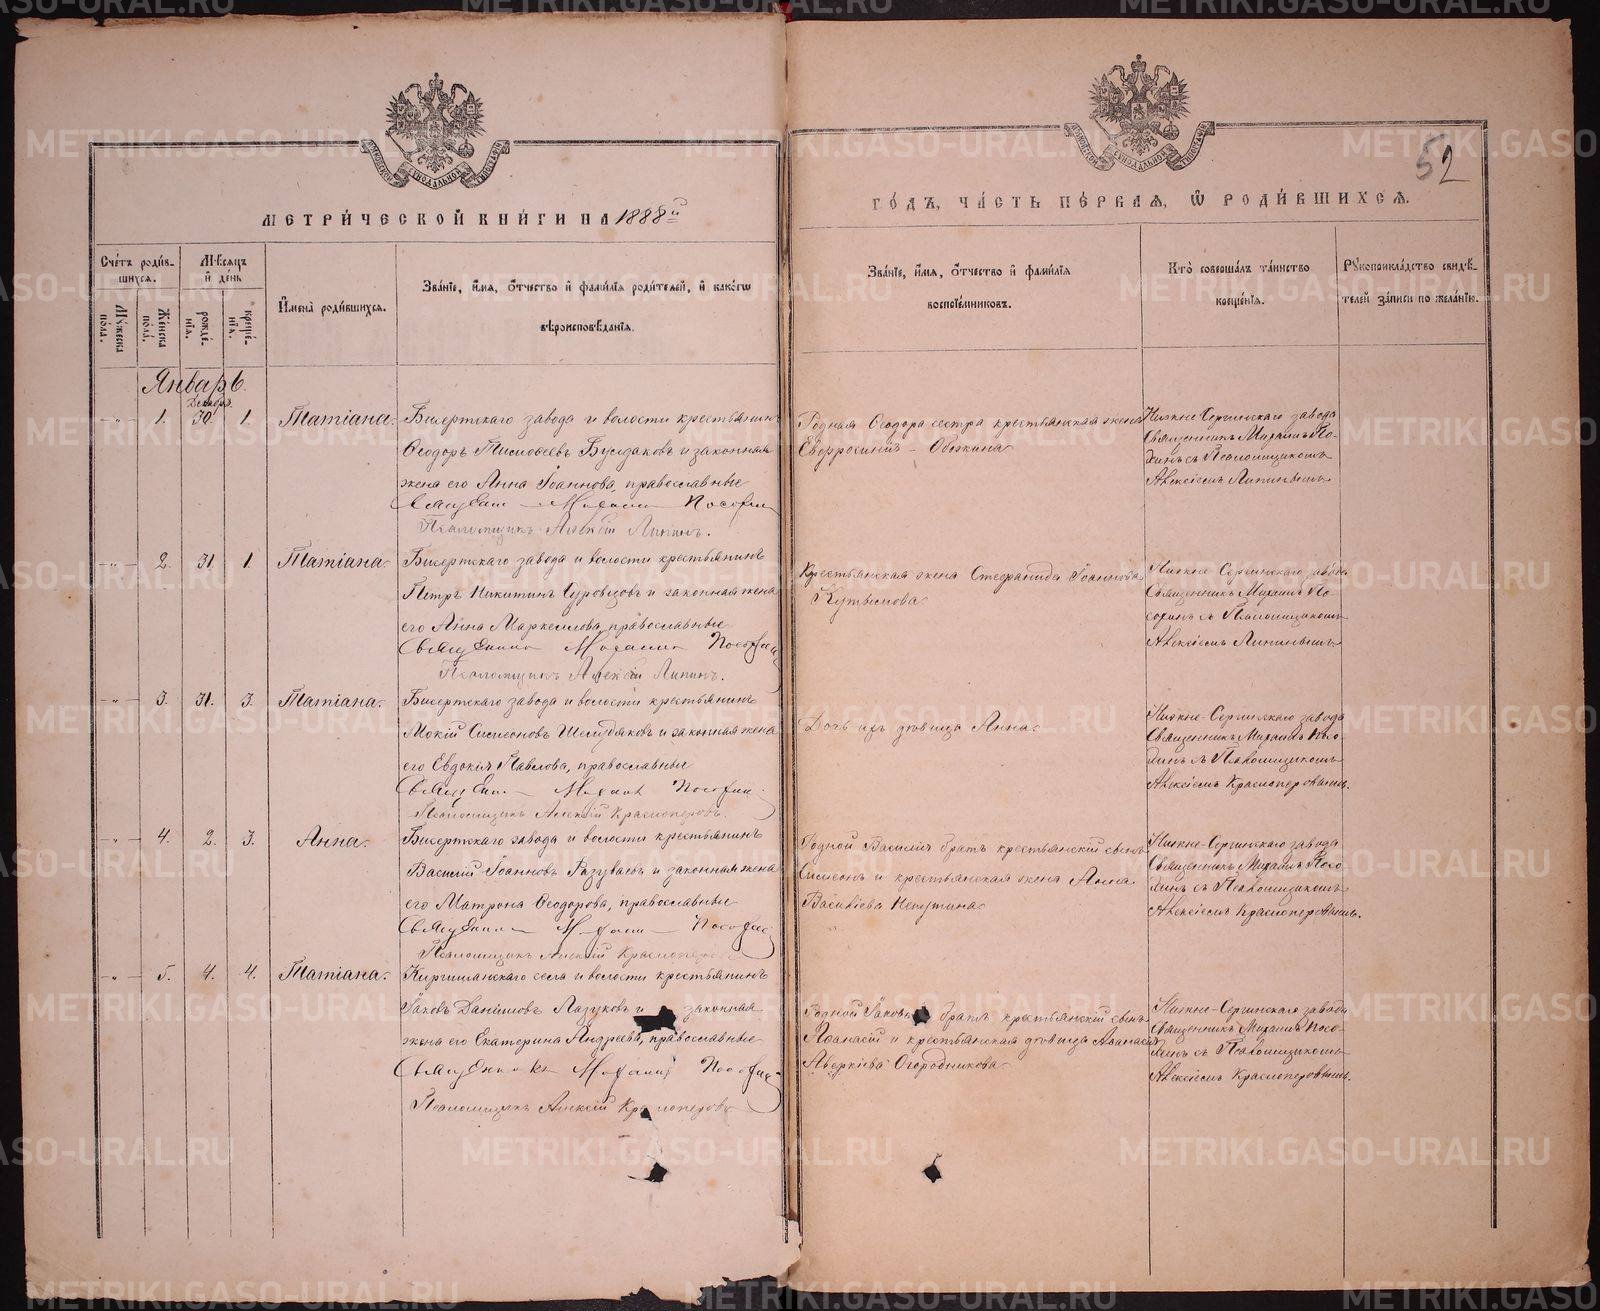 МЕТРИЧЕСКОЙ КНИГИ НА 1888й
ГОДЪ, ЧАСТЬ ПЕРВАЯ, Ѿ РОДИВШИХСЯ.
52
Счетъ родившихся.
Мужеска пола.
Женска пола.
Мѣсяцъ и день
рожденія.
крещенія.
Имена родившихся.
Званіе, имя, отчество и фамилія родителей, и какого
вѣроисповѣданія.
Званіе, имя, отчество и фамилія
воспріемниковъ.
Кто совершалъ таинство
крещенія.
Рукоприкладство свидѣтелей записи по желанію.
Январь.
Декабря.
1. 30. 1. Татіана.
Бисертскаго завода и волости крестьянинъ
Ѳеодоръ и законная
жена его Анна Іоаннова, православные
Священникъ Михаилъ
Псаломщикъ Алексій Липинъ.
Родная Ѳеодора сестра крестьянская жена
Евфросинія
Нижне-Сергинскаго завода
Священникъ Михаилъ По-
съ Псаломщикомъ
Алексіемъ Липинымъ
2. 31. 1. Татіана.
Бисертскаго завода и волости крестьянинъ
Петръ Никитинъ Суровцовъ и законная жена
его Анна Маркеллова, православные
Священникъ Михаилъ
Псаломщикъ Алексій Липинъ.
Крестьянская жена Стефанида Іоаннова
Кутьинова
Нижне-Сергинскаго завода
Священникъ Михаилъ По-
съ Псаломщикомъ
Алексіемъ Липинымъ
3. 31. 3. Татіана.
Бисертскаго завода и волости крестьянинъ
Мокій Симеоновъ Шемудяковъ и законная жена
его Евдокія Павлова, православные
Священникъ Михаилъ
Псаломщикъ Алексій Красноперовъ.
Дочь ихъ дѣвица Анна
Нижне-Сергинскаго завода
Священникъ Михаилъ
съ Псаломщикомъ
Алексіемъ Красноперовымъ.
4. 2. 3. Анна.
Бисертскаго завода и волости крестьянинъ
Василій Іоанновъ Разуваевъ и законная жена
его Матрона Ѳеодорова, православные
Священникъ Михаилъ
Псаломщикъ Алексій
Родной Василія братъ крестьянскій сынъ
Симеонъ и крестьянская жена Анна
Васильева
Нижне-Сергинскаго завода
Священникъ Михаилъ
съ Псаломщикомъ
Алексіемъ Красноперовымъ.
5. 4. 4. Татіана.
Киргишанскаго села и волости крестьянинъ
Іаковъ Даніиловъ Лазуковъ и законная
жена его Екатерина Андреева, православные
Священникъ Михаилъ
Псаломщикъ Алексій
Родной Іакова братъ крестьянскій сынъ
Аѳанасій и крестьянская дѣвица Аѳанасія
Аверкіева Огородникова
Нижне-Сергинскаго завода
Священникъ Михаилъ
съ Псаломщикомъ
Алексіемъ Красноперовымъ.
METRIKI.GASO-URAL.RU